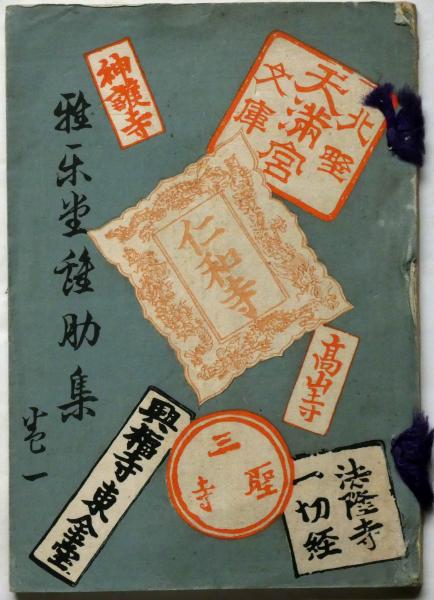 雅楽堂雞肋集
巻一
神護寺
北野
天満宮
文庫
仁和寺
高山寺
三聖寺
興福寺 東金堂
法隆寺
一切経